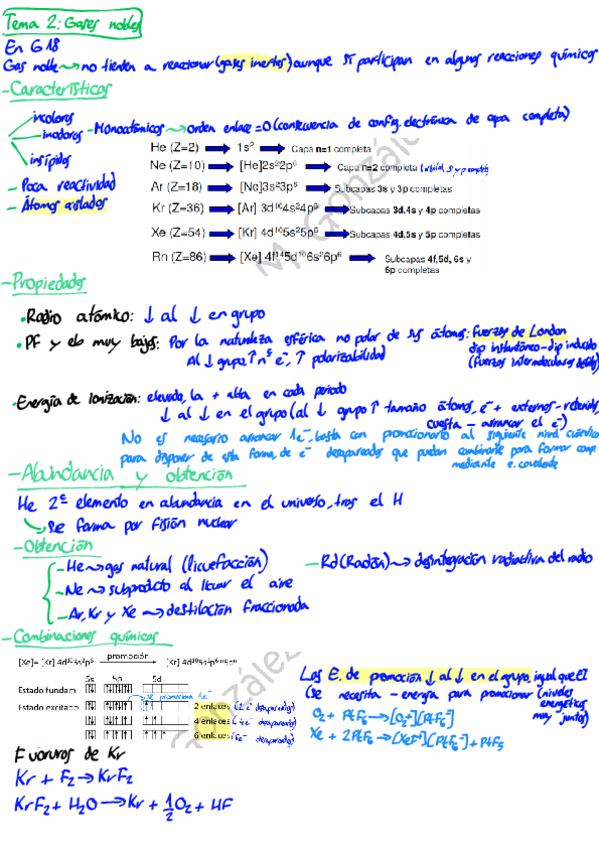 Tema 2: Gases nobles
En G18
Gas noble → no tienden a reaccionar (gases inertes) aunque sí participan en algunas reacciones químicas
- Características
incoloros
inodoros
insípidos
- Monoatómicos → orden enlace = 0 (consecuencia de config. electrónica de capa completa)
- Poca reactividad
- Átomos aislados
He (Z=2) → 1s² → Capa n=1 completa
Ne (Z=10) → [He]2s²2p⁶ → Capa n=2 completa (orbital s y p completo)
Ar (Z=18) → [Ne]3s²3p⁶ → Subcapas 3s y 3p completas
Kr (Z=36) → [Ar] 3d¹⁰4s²4p⁶ → Subcapas 3d,4s y 4p completas
Xe (Z=54) → [Kr] 4d¹⁰5s²5p⁶ → Subcapas 4d,5s y 5p completas
Rn (Z=86) → [Xe] 4f¹⁴5d¹⁰6s²6p⁶ → Subcapas 4f,5d, 6s y
6p completas
M. González
- Propiedades
• Radio atómico: ↓ al ↓ en grupo
• PF y eb muy bajos: Por la naturaleza esférica no polar de sus átomos: fuerzas de London
dip instantáneo-dip inducido
Al ↓ grupo ↑ nº e⁻, ↑ polarizabilidad
(fuerzas intermoleculares débiles)
• Energía de Ionización: elevada, la + alta en cada periodo
↓ al ↓ en el grupo (al ↓ grupo ↑ tamaño átomos, e⁻ + externos - retenidos,
cuesta - arrancar el e⁻)
No es necesario arrancar 1e⁻, basta con promocionarlo al siguiente nivel cuántico
para disponer de esta forma, de e⁻ desapareados que puedan combinarse para formar comp
mediante e. covalente
- Abundancia y obtención
He 2º elemento en abundancia en el universo, tras el H
→ se forma por fisión nuclear
- Obtención
- He → gas natural (licuefacción)
- Ne → subproducto al licuar el aire
- Ar, Kr y Xe → destilación fraccionada
- Rd (Radón) → desintegración radiactiva del radio
- Combinaciones químicas
[Xe]= [Kr] 4d¹⁰5s²5p⁶ promoción → [Kr]
5s 5p 5d
Estado fundam
se promociona 1e⁻
Estado excitado 2 enlaces (2e⁻ desapareados)
4 enlaces (4e⁻ desapareados)
6 enlaces (6e⁻ desapareados)
González
Las E. de promoción ↓ al ↓ en el grupo, igual que EI
(se necesita - energía para promocionar (niveles
energéticos
muy juntos)
O₂ + PtF₆ → [O₂⁺][PtF₆⁻]
Xe + 2PtF₆ → [XeF⁺][PtF₆⁻] + PtF₅
Fluoruros de Kr
Kr + F₂ → KrF₂
KrF₂ + H₂O → Kr + 1/2 O₂ + HF